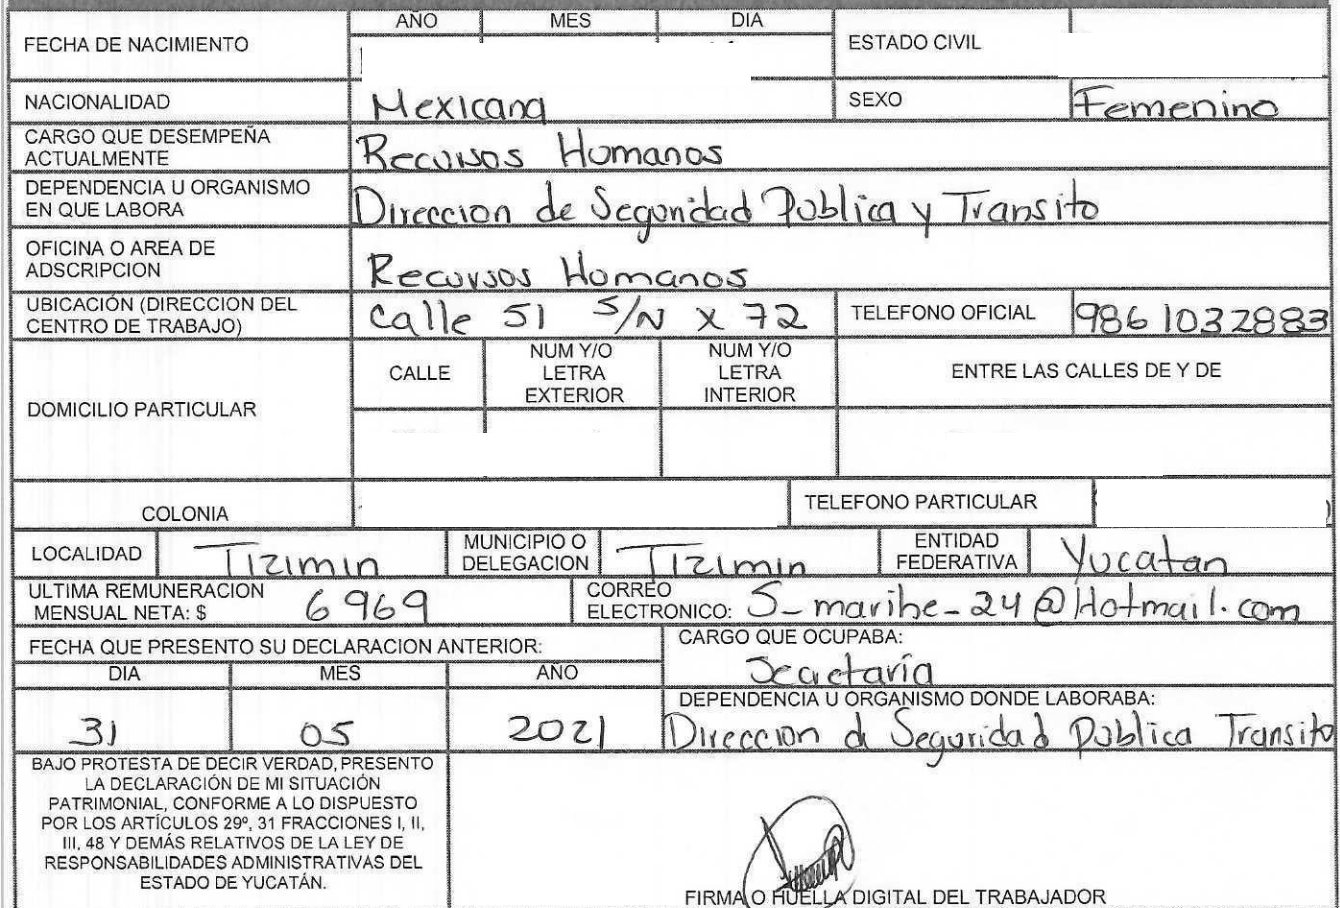 AÑO MES DIA
FECHA DE NACIMIENTO
ESTADO CIVIL
NACIONALIDAD Mexicana SEXO Femenino
CARGO QUE DESEMPEÑA
ACTUALMENTE Recursos Humanos
DEPENDENCIA U ORGANISMO
EN QUE LABORA Direccion de Seguridad Publica y Transito
OFICINA O AREA DE
ADSCRIPCION Recursos Humanos
UBICACIÓN (DIRECCION DEL
CENTRO DE TRABAJO) Calle 51 S/N x 72 TELEFONO OFICIAL 986 1032883
DOMICILIO PARTICULAR
CALLE
NUM Y/O
LETRA
EXTERIOR
NUM Y/O
LETRA
INTERIOR
ENTRE LAS CALLES DE Y DE
COLONIA TELEFONO PARTICULAR
LOCALIDAD Tizimin
MUNICIPIO O
DELEGACION Tizimin
ENTIDAD
FEDERATIVA Yucatan
ULTIMA REMUNERACION
MENSUAL NETA: $ 6969
CORREO
ELECTRONICO: S_maribe_24@Hotmail.com
FECHA QUE PRESENTO SU DECLARACION ANTERIOR:
DIA MES AÑO
31 05 2021
CARGO QUE OCUPABA:
Secretaría
DEPENDENCIA U ORGANISMO DONDE LABORABA:
Direccion d Seguridad Publica Transito
BAJO PROTESTA DE DECIR VERDAD, PRESENTO
LA DECLARACIÓN DE MI SITUACIÓN
PATRIMONIAL, CONFORME A LO DISPUESTO
POR LOS ARTÍCULOS 29º, 31 FRACCIONES I, II,
III, 48 Y DEMÁS RELATIVOS DE LA LEY DE
RESPONSABILIDADES ADMINISTRATIVAS DEL
ESTADO DE YUCATÁN.
FIRMA O HUELLA DIGITAL DEL TRABAJADOR